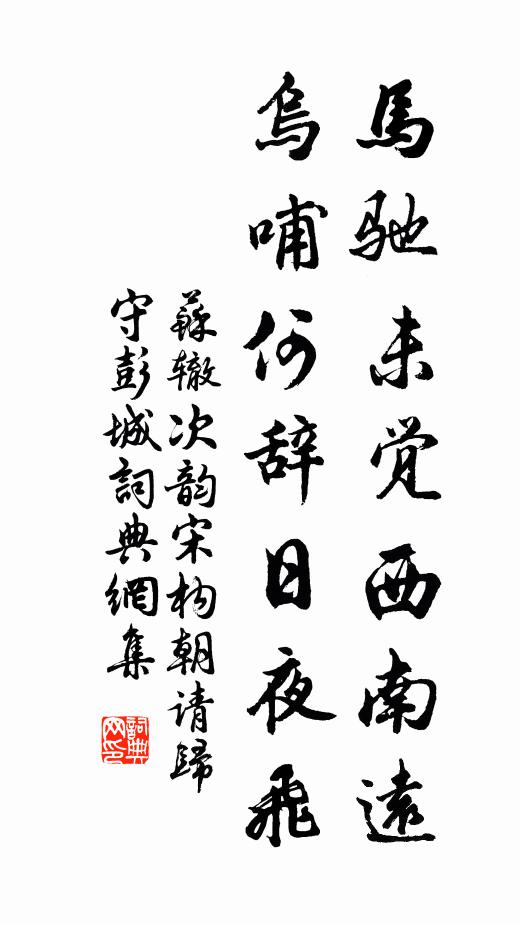 馬驰未觉西南遠
烏哺何辞日夜飛
蘇辙次韵宋构朝请歸
守彭城詞典網集
詞典
网印